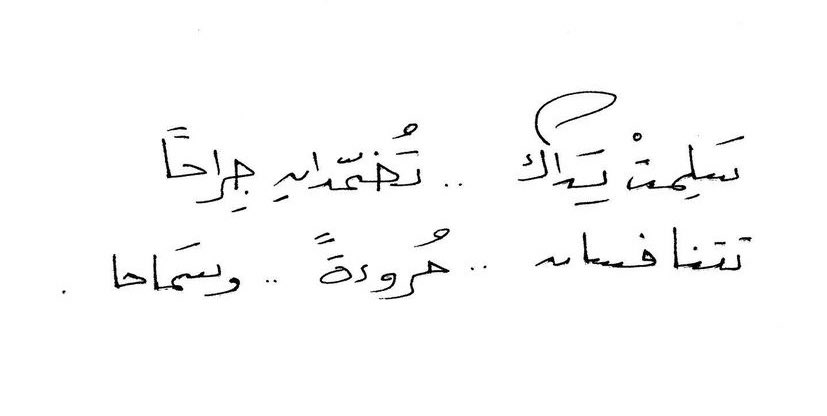 سَلِمتْ يَداك .. تُضَمّدانِ جِراحاً
تتنافسان .. مُروءةً .. وسَماحا .